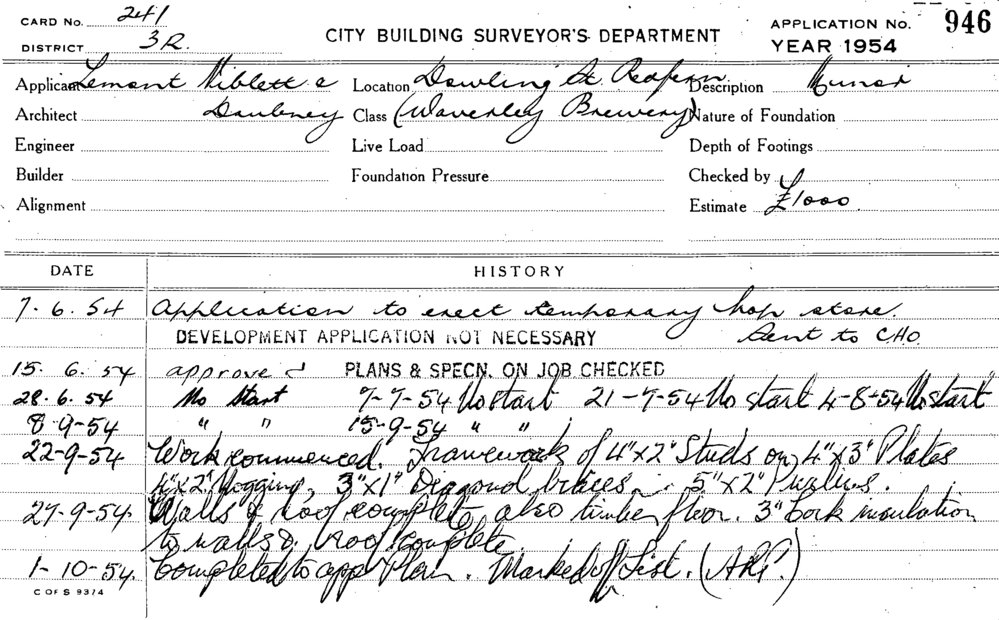 CARD No. 241
DISTRICT 3R.
CITY BUILDING SURVEYOR'S DEPARTMENT
APPLICATION No. 946
YEAR 1954
Applicant Lemont Niblett & Location Dowling St Redfern Description Minor
Architect Daubney Class (Waverley Brewery) Nature of Foundation
Engineer Live Load Depth of Footings
Builder Foundation Pressure Checked by
Alignment Estimate £1000
DATE HISTORY
7. 6. 54 Application to erect temporary hop store.
DEVELOPMENT APPLICATION NOT NECESSARY Sent to CHO.
15. 6. 54 approved PLANS & SPECN. ON JOB CHECKED
28.6.54 No Start 7-7-54 No start 21-7-54 No start 4-8-54 No start
8-9-54 " " 15-9-54 " "
22-9-54 Work commenced. Framework of 4"x2" Studs on 4"x3" Plates
4"x2" Nogging, 3"x1" Diagonal braces 5"x2" Purlins.
27-9-54. Walls & roof complete also timber floor. 3" Cork insulation
to walls & roof complete
1-10-54. Completed to app Plan. Marked off List.
C OF S 9374